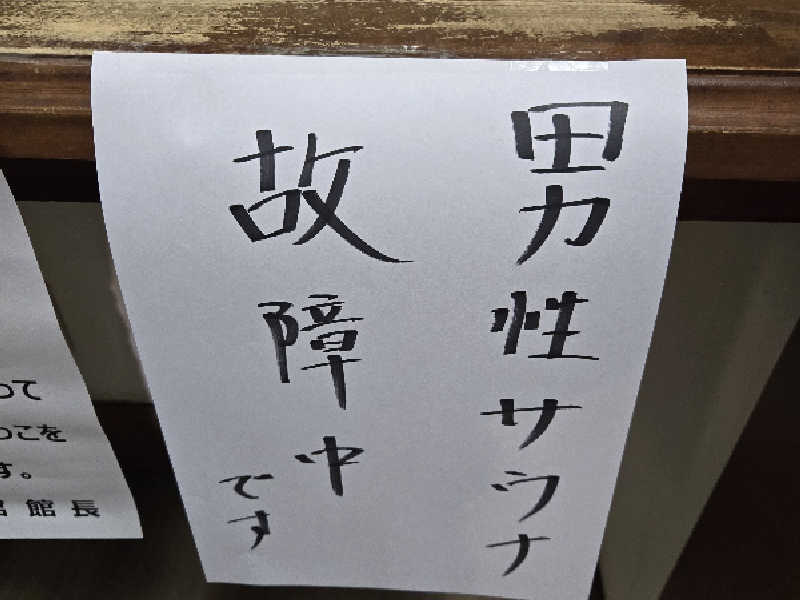 男性サウナ
故障中
です
って
っこを
す。
館長